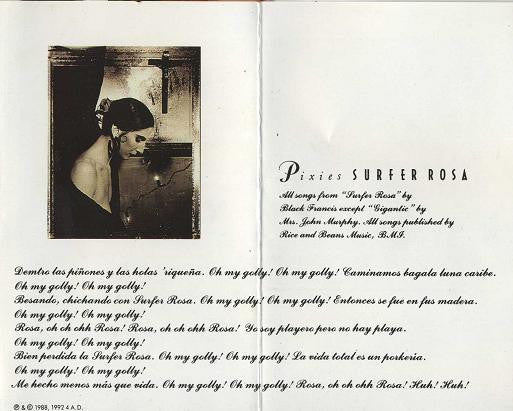 Pixies SURFER ROSA
All songs from "Surfer Rosa" by
Black Francis except "Gigantic" by
Mrs. John Murphy. All songs published by
Rice and Beans Music, BMI.
Demtro las piñones y las holas 'riqueña. Oh my golly! Oh my golly! Caminamos bagala tuna caribe.
Oh my golly! Oh my golly!
Besando, chichando con Surfer Rosa. Oh my golly! Oh my golly! Entonces se fue en fus madera.
Oh my golly! Oh my golly!
Rosa, oh oh ohh Rosa! Rosa, oh oh ohh Rosa! Yo soy playero pero no hay playa.
Oh my golly! Oh my golly!
Bien perdida la Surfer Rosa. Oh my golly! Oh my golly! La vida total es un porkeria.
Oh my golly! Oh my golly!
Me hecho menos más que vida. Oh my golly! Oh my golly! Rosa, oh oh ohh Rosa! Huh! Huh!
℗ & © 1988, 1992 4 A.D.